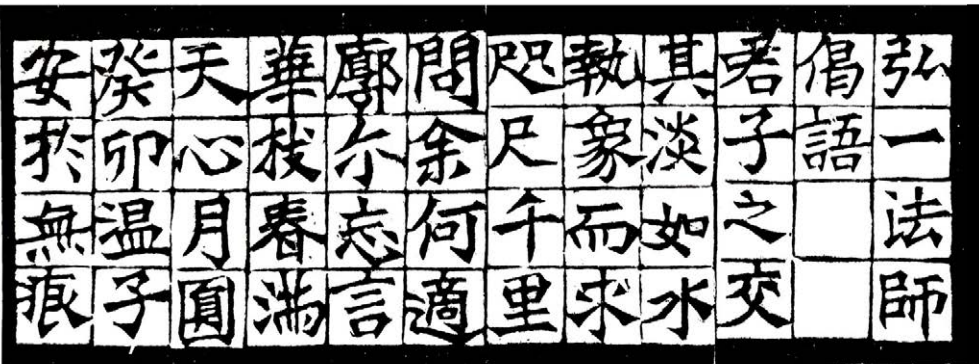 弘一法師
偈語
君子之交
其淡如水
執象而求
咫尺千里
問余何適
廓尒忘言
華枝春滿
天心月圓
癸卯温子
安扵無痕